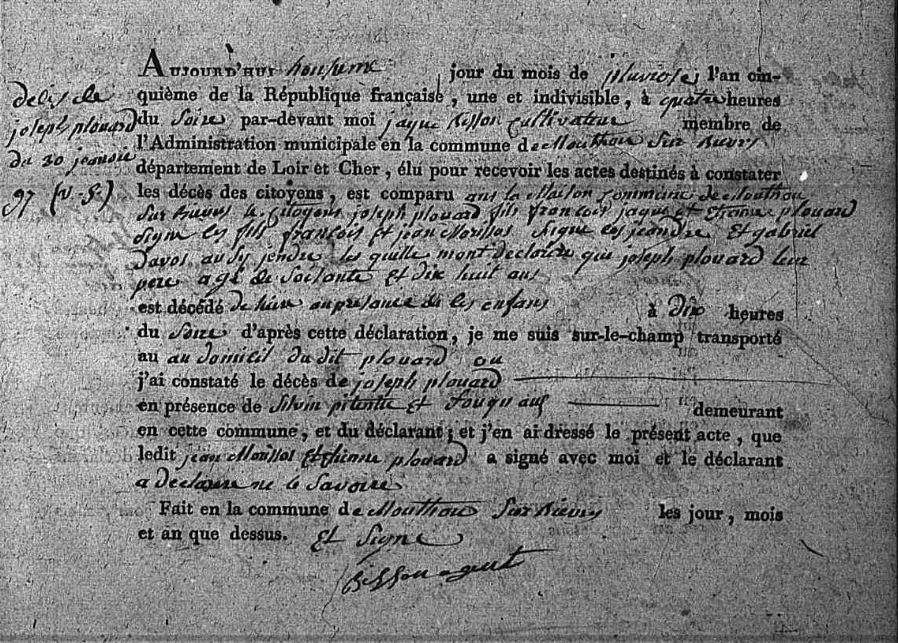 Aujourd'hui honsieme jour du mois de pluviose, l'an cin-
quième de la République française, une et indivisible, à quatre heures
du Soire par-devant moi jaque Bisson Cultivateur membre de
l'Administration municipale en la commune de Mouthou Sur Bievre
département de Loir et Cher, élu pour recevoir les actes destinés à constater
les décès des citoyens, est comparu commune de Mouthou
Sur Bievre le Citoyens joseph plouard fils francois jaque et Etienne plouard
fils francois Et jean Et gabriel
jendre qui joseph plouard leur
pere agé de Soisante Et dix huit ans
est décédé de hier anpresance de ses enfans à Dix heures
du Soire d'après cette déclaration, je me suis sur-le-champ transporté
au au domicil du dit plouard ou
j'ai constaté le décès de joseph plouard
en présence de Silvin Et demeurant
en cette commune, et du déclarant; et j'en ai dressé le présent acte, que
ledit jean Et Etienne plouard a signé avec moi et le déclarant
a declaire ne le Savoire
Fait en la commune de Mouthou Sur Bievre les jour, mois
et an que dessus. Et Signe
Bisson agent
joseph plouard
du 30
97 (v. s.)